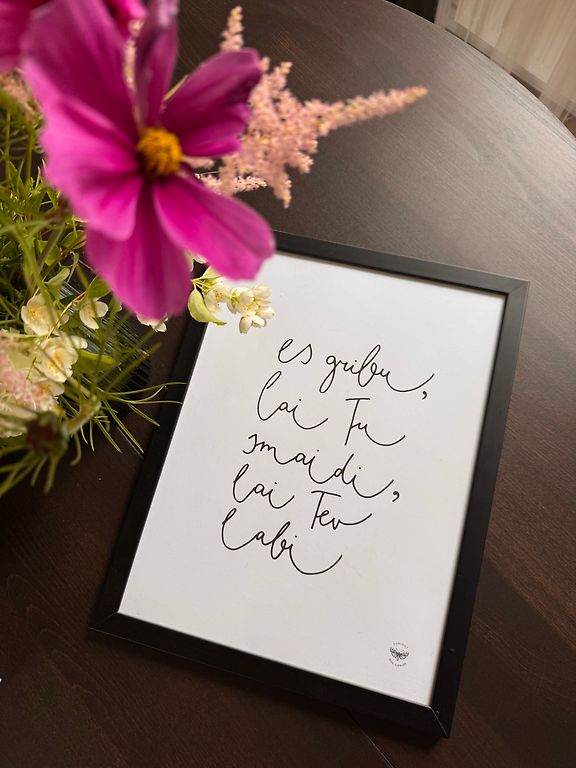 es gribu,
lai Tu
smaidi,
lai Tev
labi